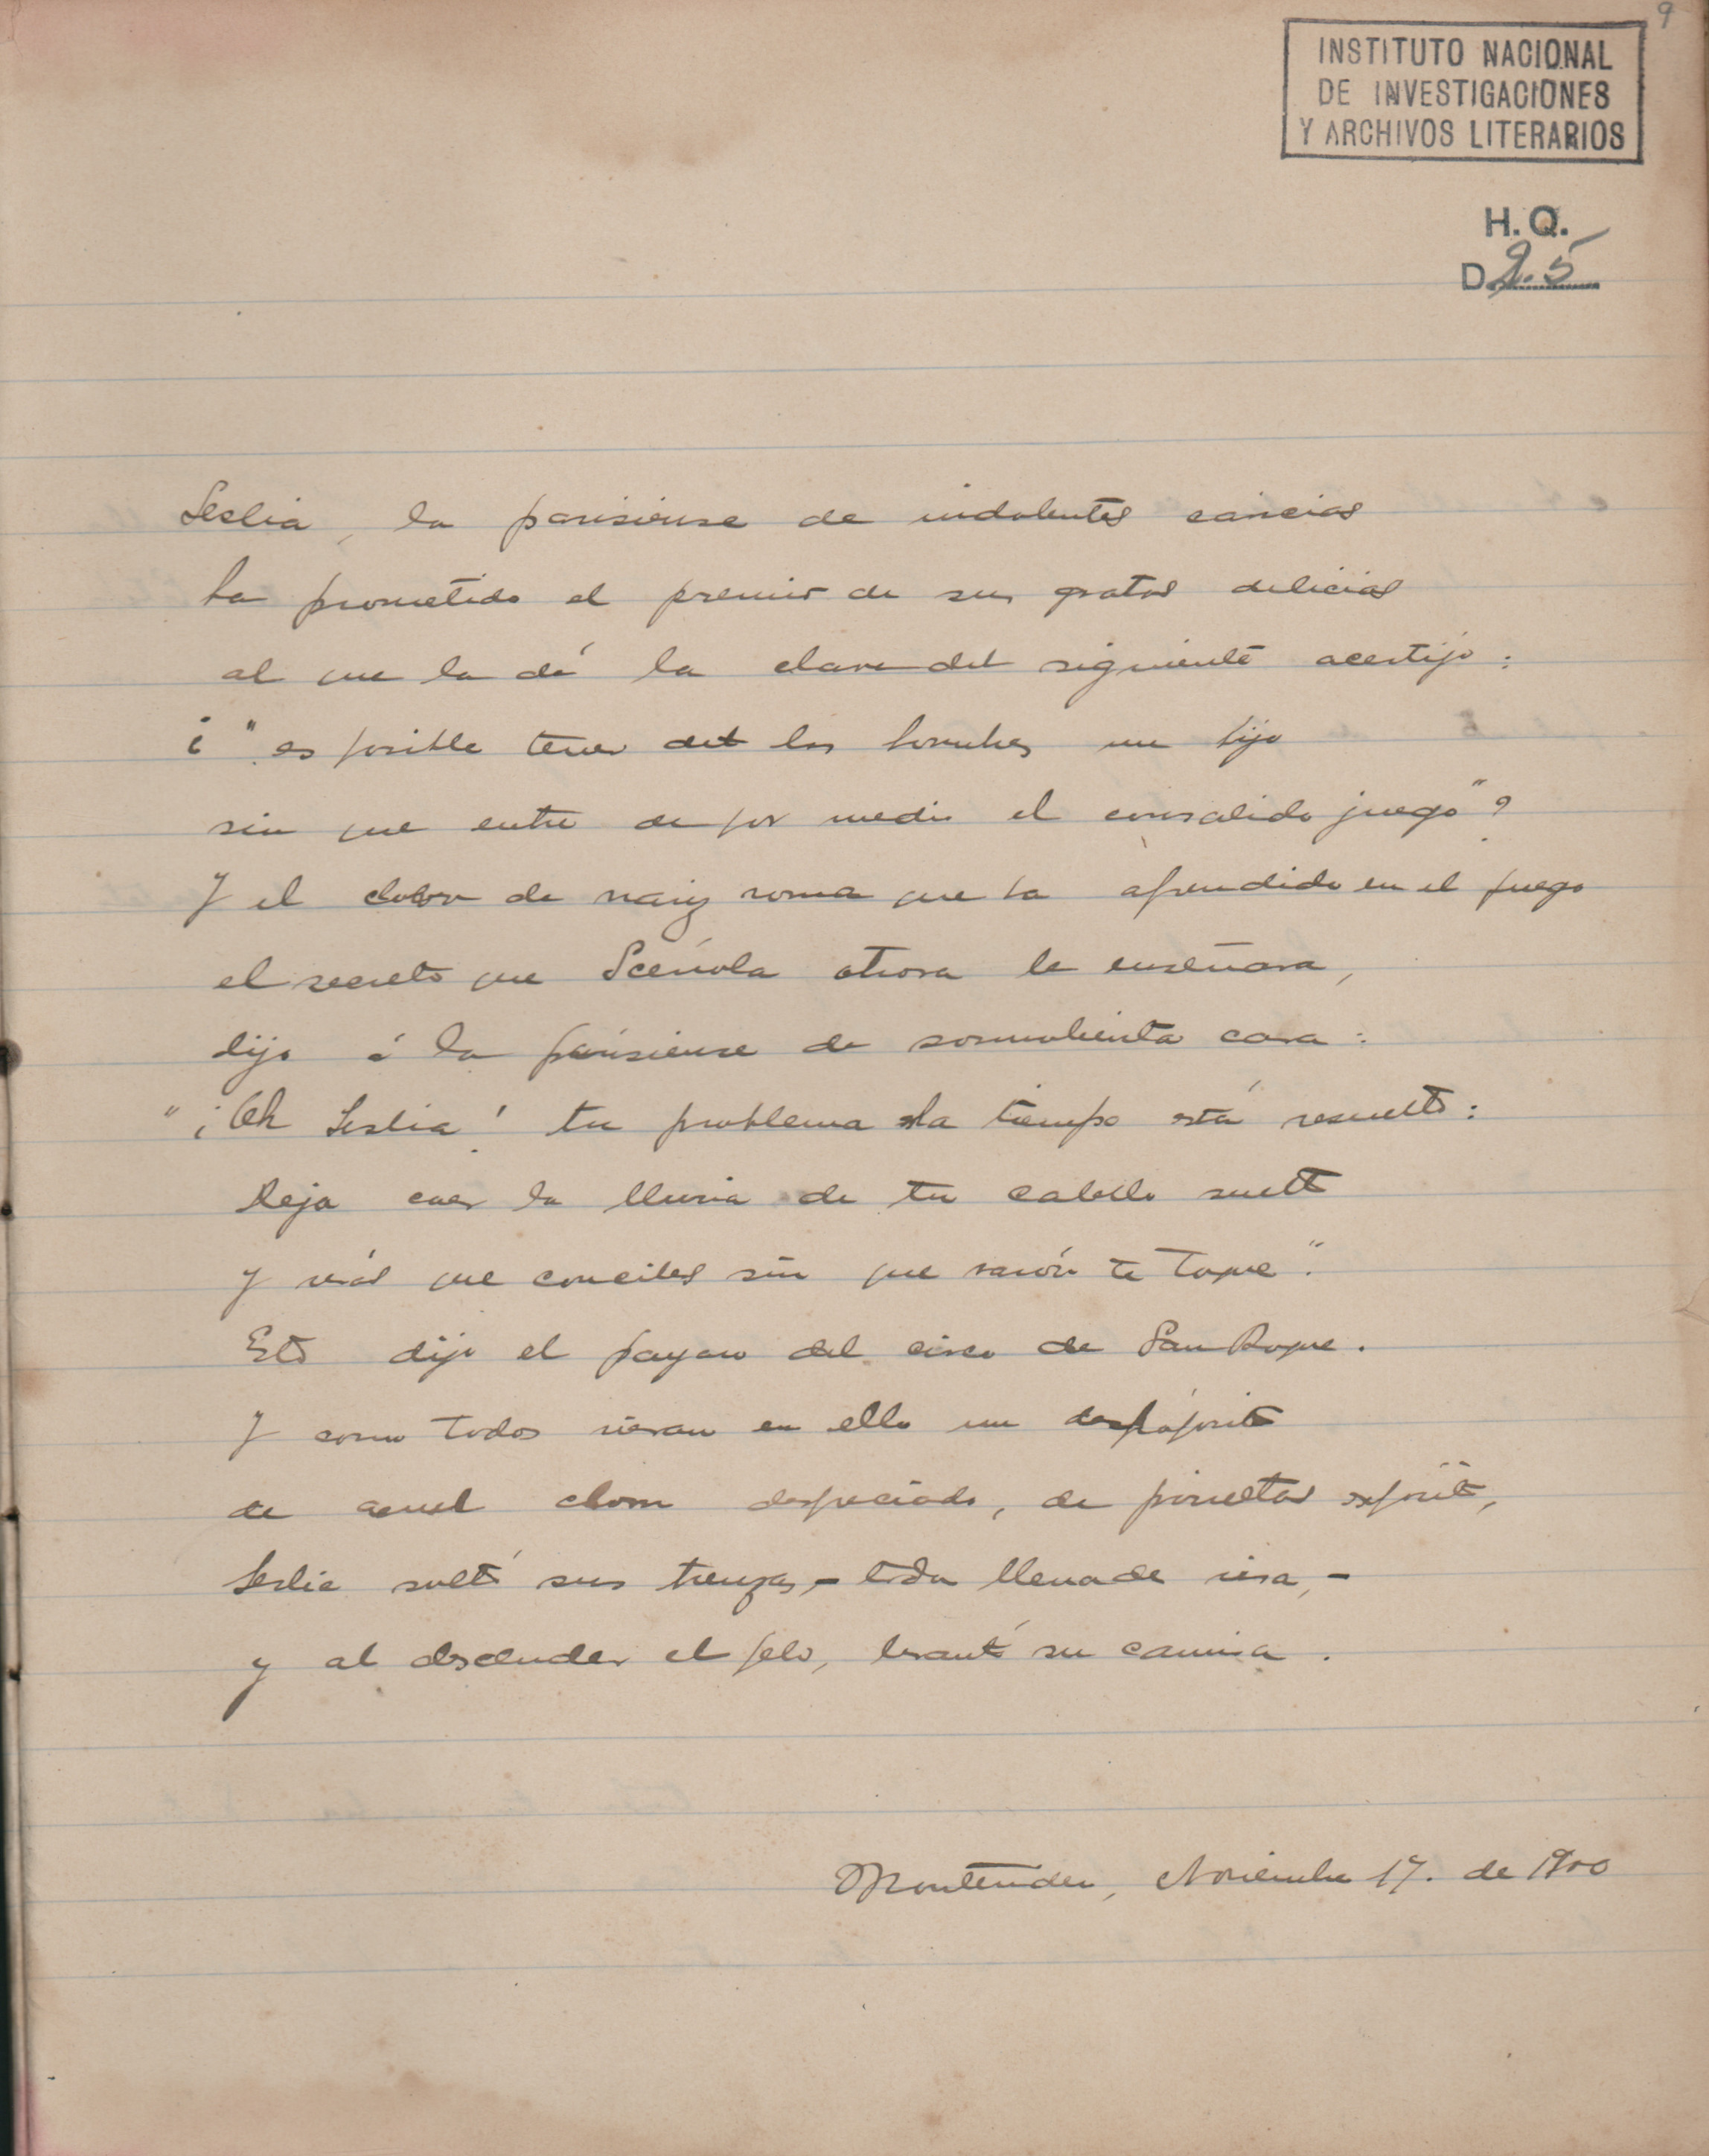 9
INSTITUTO NACIONAL
DE INVESTIGACIONES
Y ARCHIVOS LITERARIOS
H. Q.
D 2.5
Lesbia, la parisiense de indolentes caricias
ha prometido el premio de sus gratas delicias
al que la dé la clave del siguiente acertijo:
¿"es posible tener de los hombres un hijo
sin que entre de por medio el consabido juego"?
Y el clown de nariz roma que ha aprendido en el fuego
el secreto que Scévola otrora le enseñara,
dijo á la parisiense de somnolienta cara:
"¡Oh Lesbia! tu problema ha tiempo está resuelto:
Deja caer la lluvia de tu cabello suelto
y verás que concibes sin que varón te toque".
Esto dijo el payaso del circo de San Roque.
Y como todos vieran en ello un despropósito
de aquel clown despreciado, de piruetas expósito,
Lesbia soltó sus trenzas, - toda llena de risa, -
y al descender el pelo, levantó su camisa.
Montevideo, Noviembre 17. de 1900